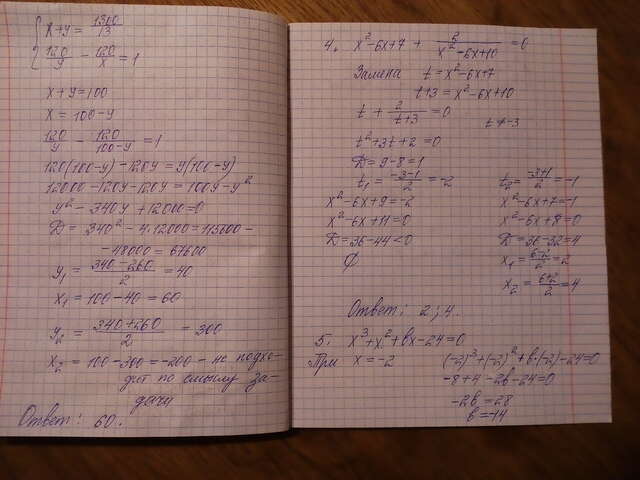 x+y = 1300/13
120/y - 120/x = 1
x+y=100
x = 100-y
120/y - 120/(100-y) = 1
120(100-y)-120y=y(100-y)
12000-120y-120y=100y-y²
y²-340y+12000=0
D = 340²-4·12000=115600-
-48000=67600
y₁ = (340-260)/2 = 40
x₁ = 100-40 = 60
y₂ = (340+260)/2 = 300
x₂ = 100-300=-200 - не подхо-
дит по смыслу за-
дачи
Ответ: 60.
4. x²-6x+7 + 2/(x²-6x+10) = 0
Замена t = x²-6x+7
t+3 = x²-6x+10
t + 2/(t+3) = 0
t ≠ -3
t²+3t+2=0
D = 9-8=1
t₁ = (-3-1)/2 = -2
x²-6x+9=-2
x²-6x+11=0
D=36-44<0
∅
t₂ = (-3+1)/2 = -1
x²-6x+7=-1
x²-6x+8=0
D=36-32=4
x₁ = (6-2)/2 = 2
x₂ = (6+2)/2 = 4
Ответ: 2; 4.
5. x³+x²+bx-24=0
При x=-2 (-2)³+(-2)²+b·(-2)-24=0
-8+4-2b-24=0
-2b=28
b=-14